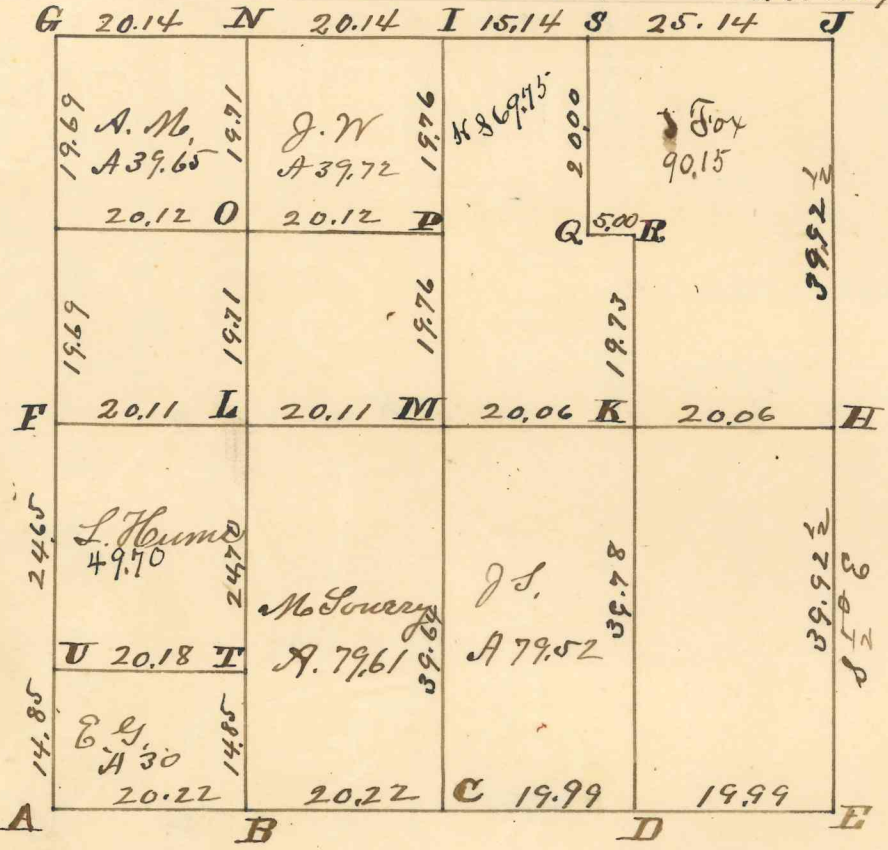 G 20.14 N 20.14 I 15.14 S 25.14 J
19.69
A. M.
A 39.65
19.71
J. W
A 39.72
19.76
869.75
2000
Fox
90.15
39.92½
20.12 O 20.12 P
Q 5.00 R
19.69
19.71
19.76
19.73
F 20.11 L 20.11 M 20.06 K 20.06 H
2465
L. Hume
49.70
24.70
M Sourry
A. 79.61
39.64
J S.
A 79.52
39.78
39.92½
U 20.18 T
14.85
E G.
A 30
14.85
20.22 20.22 C 19.99 19.99
A B D E